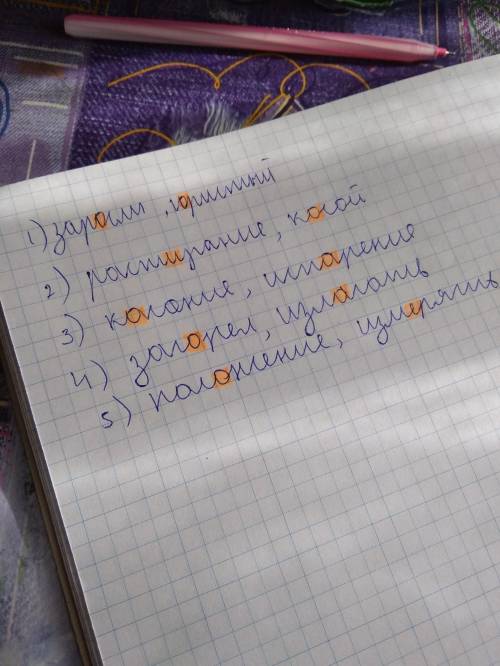 1) заросли,
2) растирание, косой
3) касание, испарение
4) загорел, излагать
5) положение, измерять